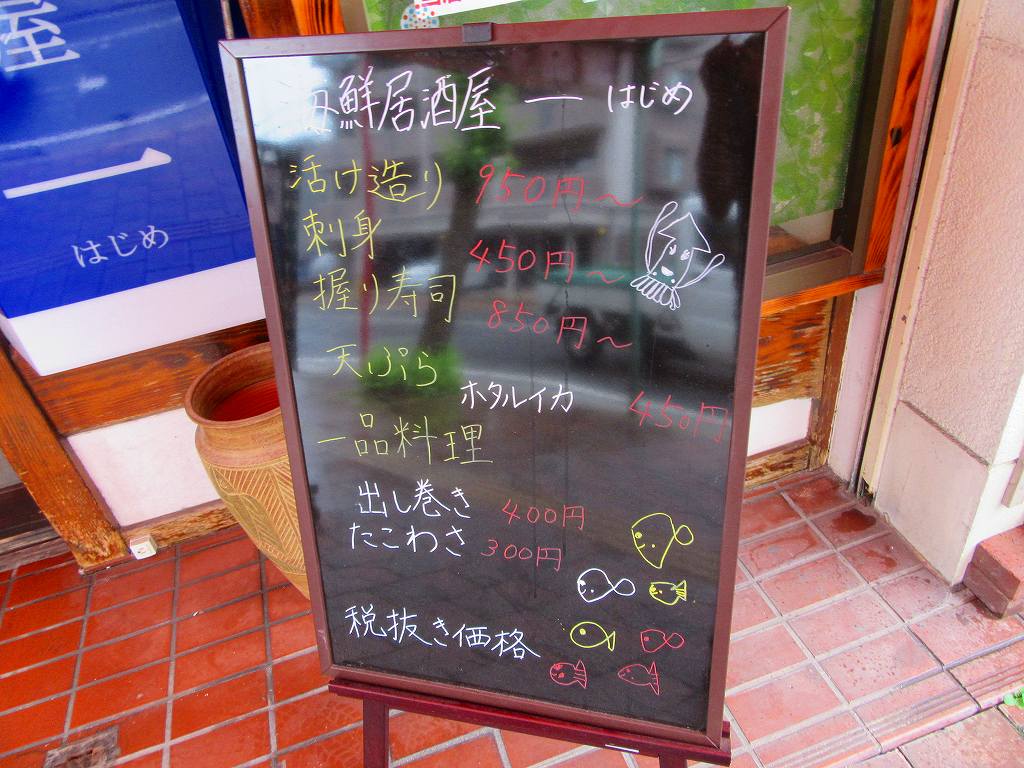 海鮮居酒屋 一 はじめ
活け造り 950円～
刺身 450円～
握り寿司 850円～
天ぷら
ホタルイカ 450円
一品料理
出し巻き 400円
たこわさ 300円
税抜き価格
屋
一
はじめ